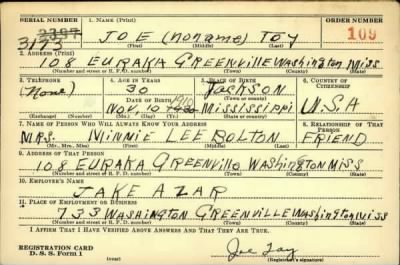 SERIAL NUMBER 1. NAME (Print) ORDER NUMBER
JOE (noname) TOY 109
(First) (Middle) (Last)
2. ADDRESS (Print)
108 EURAKA GREENVILLE Washington MISS
(Number and street or R. F. D. number) (Town) (County) (State)
3. TELEPHONE 4. AGE IN YEARS 5. PLACE OF BIRTH 6. COUNTRY OF CITIZENSHIP
(None) 30 Jackson
DATE OF BIRTH (Town or county)
Nov. 10 Mississippi U.S.A
(Exchange) (Number) (Mo.) (Day) (Yr.) (State or country)
7. NAME OF PERSON WHO WILL ALWAYS KNOW YOUR ADDRESS 8. RELATIONSHIP OF THAT PERSON
MRS. MINNIE LEE BOLTON FRIEND
(Mr., Mrs., Miss) (First) (Middle) (Last)
9. ADDRESS OF THAT PERSON
108 EURAKA GREENVille WASHINGTON MISS
(Number and street or R. F. D. number) (Town) (County) (State)
10. EMPLOYER'S NAME
JAKE AZAR
11. PLACE OF EMPLOYMENT OR BUSINESS
733 WASHINGTON GREENVILLE Washington Miss
(Number and street or R. F. D. number) (Town) (County) (State)
I AFFIRM THAT I HAVE VERIFIED ABOVE ANSWERS AND THAT THEY ARE TRUE.
REGISTRATION CARD
D. S. S. Form 1 Joe Toy
(Registrant's signature)